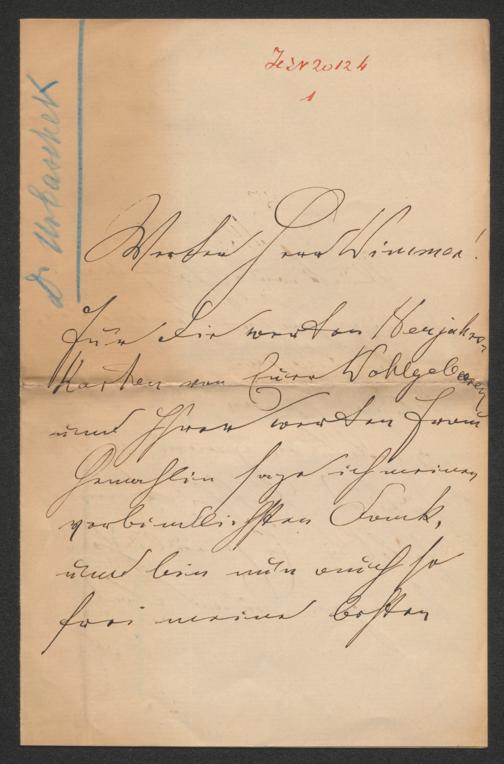 JiN 20124
1
Dr. Urbaschek
Werther Herr Wimmer!
Für die werten Neujahrs-
karten von Euer Wohlgeboren
und Ihrer werten Frau
Gemahlin sage ich meinen
verbindlichsten Dank,
und bin nun auch so
frei meine besten